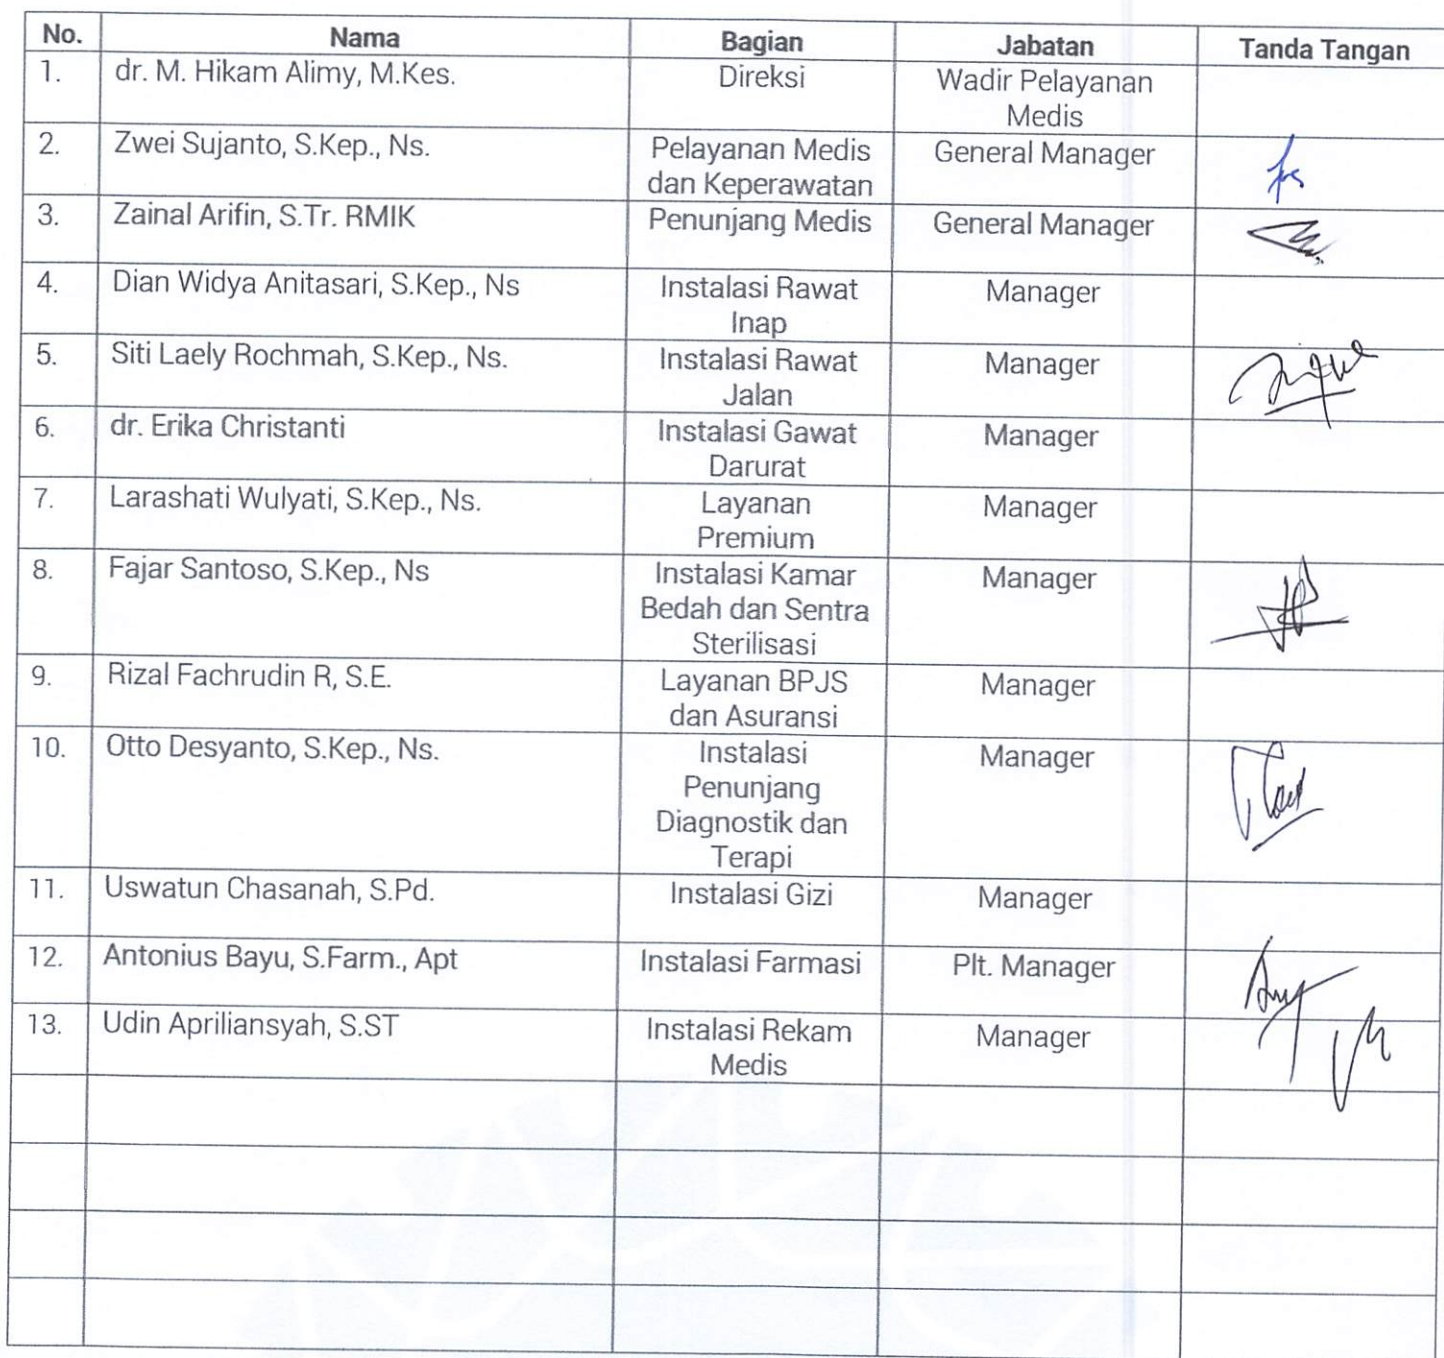 No. Nama Bagian Jabatan Tanda Tangan
1. dr. M. Hikam Alimy, M.Kes. Direksi Wadir Pelayanan
Medis
2. Zwei Sujanto, S.Kep., Ns. Pelayanan Medis General Manager
dan Keperawatan
3. Zainal Arifin, S.Tr. RMIK Penunjang Medis General Manager
4. Dian Widya Anitasari, S.Kep., Ns Instalasi Rawat Manager
Inap
5. Siti Laely Rochmah, S.Kep., Ns. Instalasi Rawat Manager
Jalan
6. dr. Erika Christanti Instalasi Gawat Manager
Darurat
7. Larashati Wulyati, S.Kep., Ns. Layanan Manager
Premium
8. Fajar Santoso, S.Kep., Ns Instalasi Kamar Manager
Bedah dan Sentra
Sterilisasi
9. Rizal Fachrudin R, S.E. Layanan BPJS Manager
dan Asuransi
10. Otto Desyanto, S.Kep., Ns. Instalasi Manager
Penunjang
Diagnostik dan
Terapi
11. Uswatun Chasanah, S.Pd. Instalasi Gizi Manager
12. Antonius Bayu, S.Farm., Apt Instalasi Farmasi Plt. Manager
13. Udin Apriliansyah, S.ST Instalasi Rekam Manager
Medis